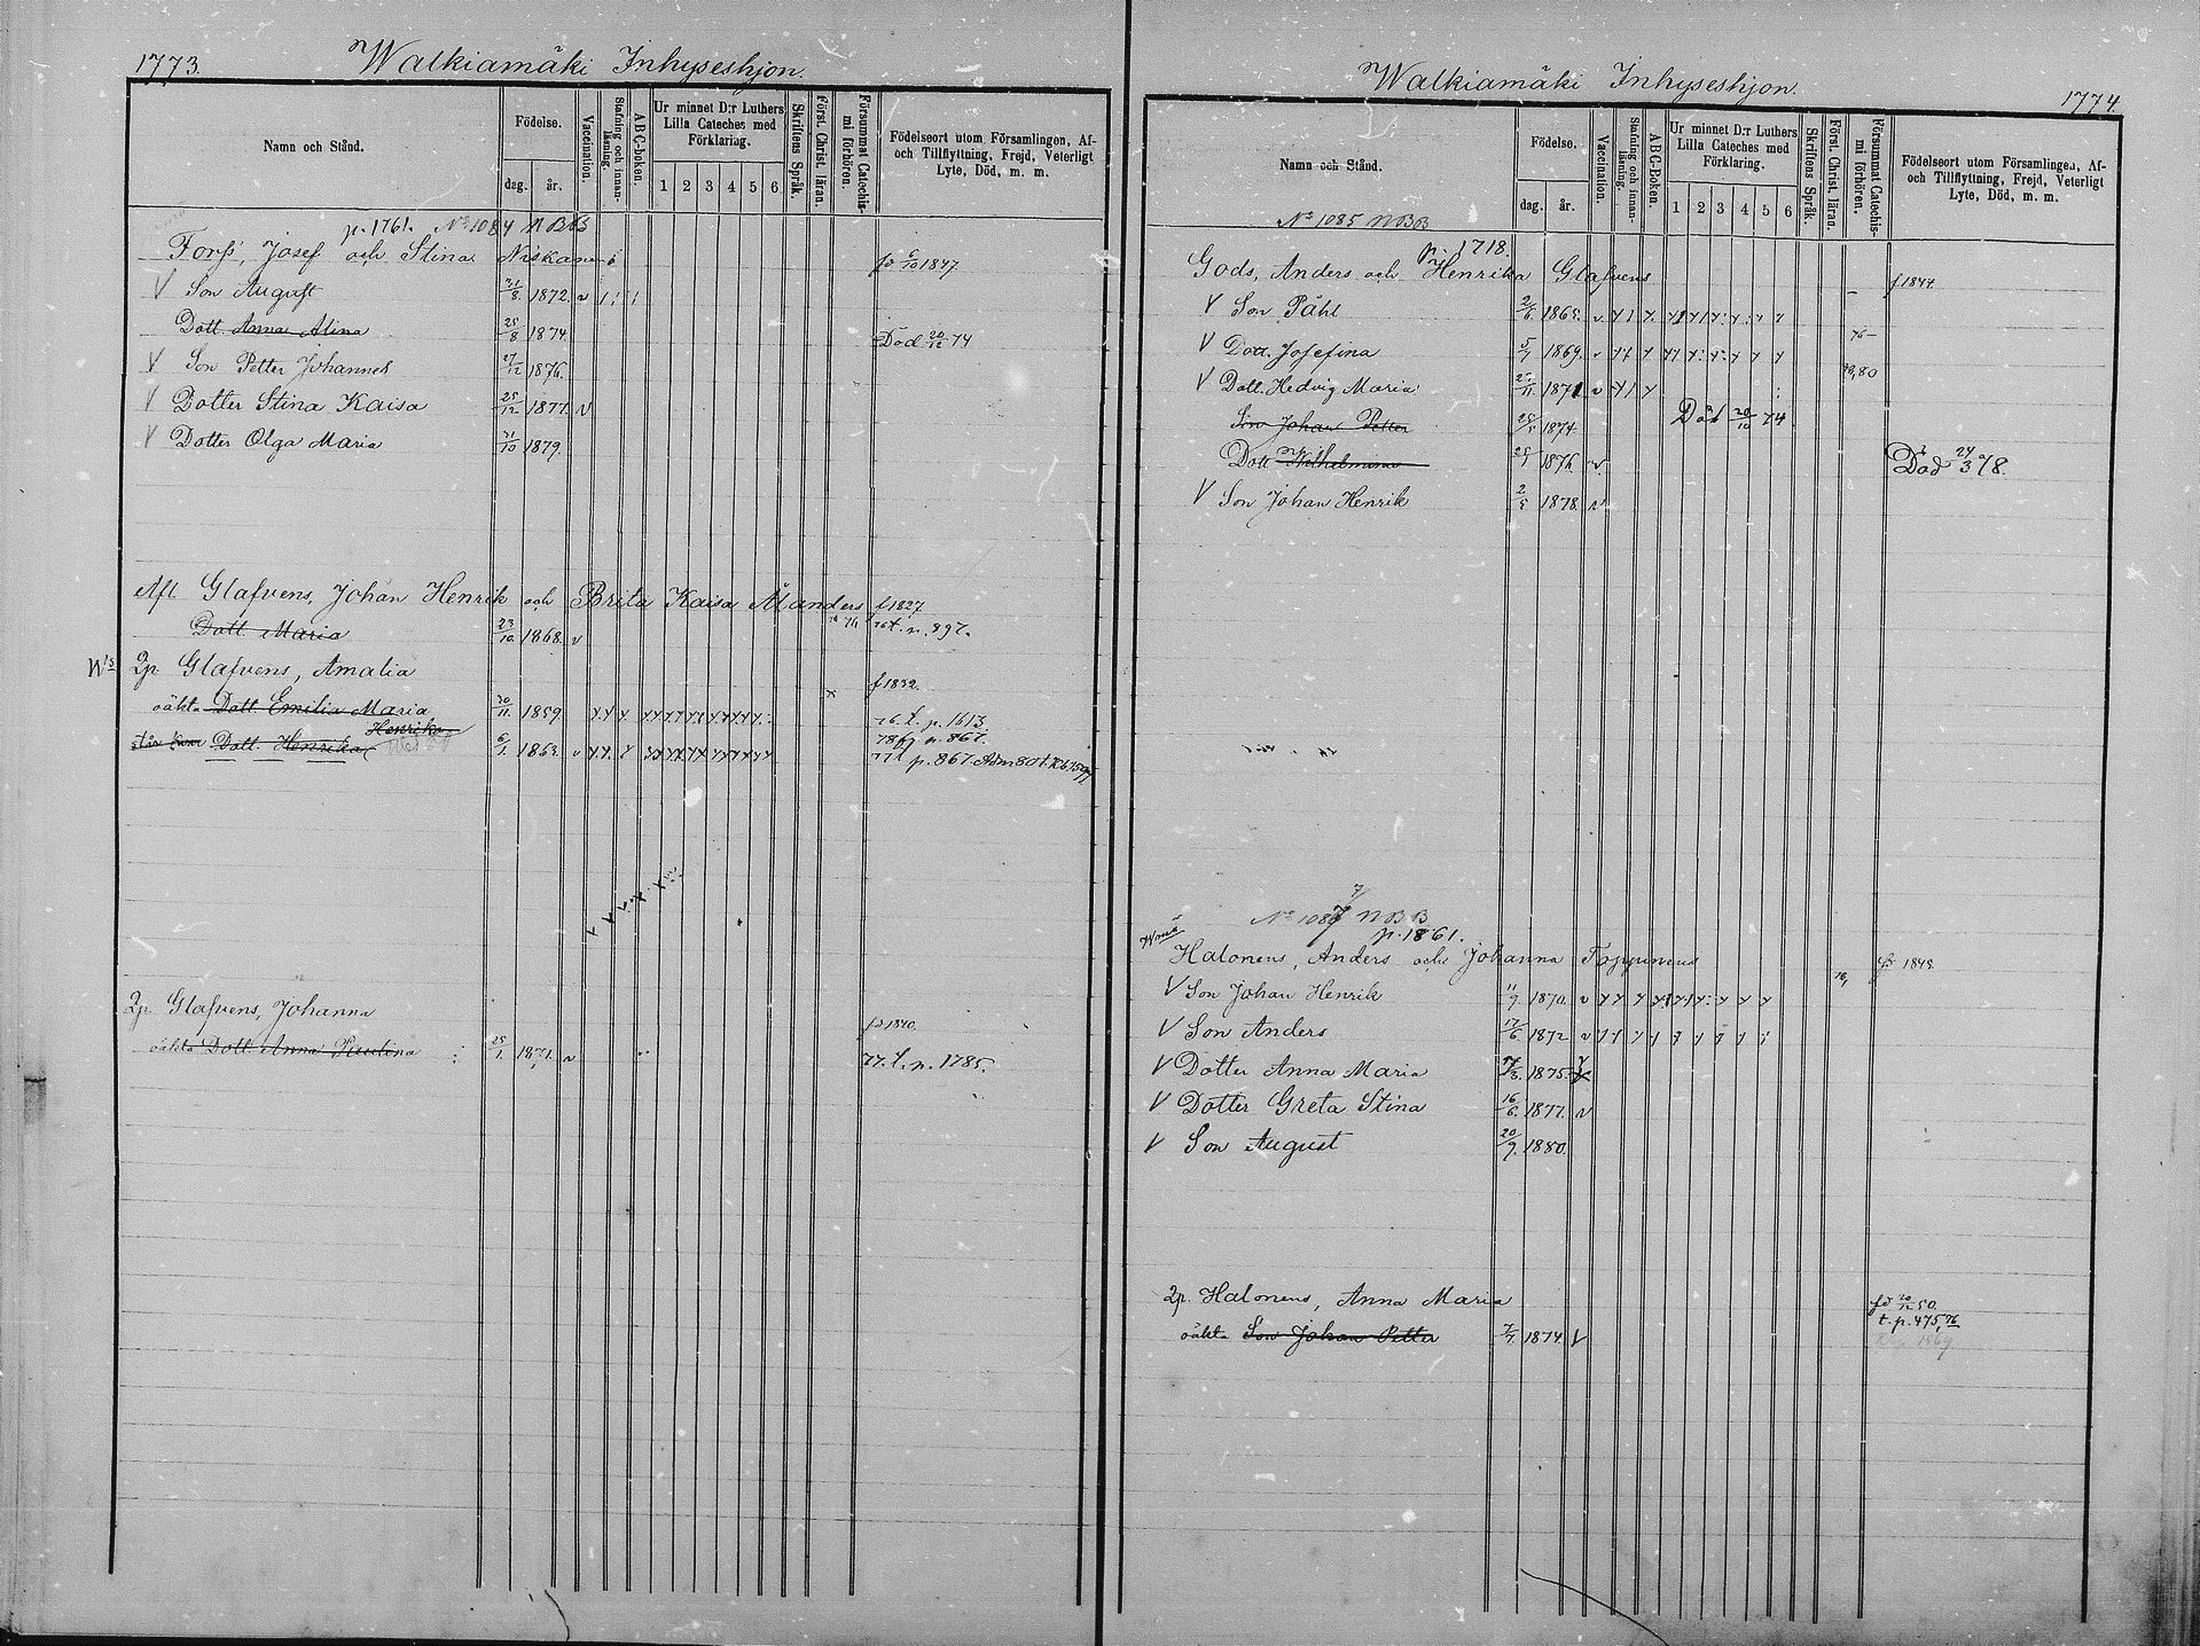 1773.
Walkiamäki Inhyseshjon.
Namn och Stånd.
Födelse.
dag. år.
Vaccination.
Stafning och innanläsning.
ABC-boken.
Ur minnet D:r Luthers Lilla Cateches med Förklaring.
1 2 3 4 5 6
Skriftens Språk.
Först. Christ. läran.
Försummat Catechismi förhören.
Födelseort utom Församlingen, Af- och Tillflyttning, Frejd, Veterligt Lyte, Död, m. m.
p. 1761. No 1084 NBB
Forss, Josef och Stina Niskanen
V Son August 31/8. 1872. v
Dott. Anna Alina 25/8 1874. Död 20/12 74
V Son Petter Johannes 27/12 1876.
V Dotter Stina Kaisa 25/12 1877. v
V Dotter Olga Maria 31/10 1879.
Afl. Glafvens, Johan Henrik och Brita Kaisa Ålanders f 1827.
Dott. Maria 23/10. 1868. v t. p. 897.
Qp Glafvens, Amalia f 1832.
oäkta Dott. Emilia Maria 30/11. 1859. 76. t. p. 1613
Henrika
Dott. Henrika 6/1. 1863. v p. 867.
Qp Glafvens, Johanna fd 1840.
oäkta Dott. Anna Paulina 25/1. 1871. v 77. t. p. 1785.
Walkiamäki Inhyseshjon.
1774.
Namn och Stånd.
Födelse.
dag. år.
Vaccination.
Stafning och innanläsning.
ABC-Boken.
Ur minnet D:r Luthers Lilla Cateches med Förklaring.
1 2 3 4 5 6
Skriftens Språk.
Först. Christ. läran.
Försummat Catechismi förhören.
Födelseort utom Församlingen, Af- och Tillflyttning, Frejd, Veterligt Lyte, Död, m. m.
No 1085 NBB
p. 1718.
Gods, Anders och Henrika Glafvens f 1844.
V Son Påhl 2/6. 1865. v
V Dott. Josefina 5/7 1869. v
V Dott. Hedvig Maria 1871 v
Son Johan Petter 1874. Död 20/10 74
Dott. Wilhelmina 1876. v Död 24/3 78.
V Son Johan Henrik 1878. v
NBB
p. 1861.
Halonens, Anders och Johanna Toppinens
V Son Johan Henrik 11/9. 1870. v
V Son Anders 17/6. 1872 v
V Dotter Anna Maria 1875.
V Dotter Greta Stina 16/6. 1877. v
V Son August 20/9. 1880.
Qp. Halonens, Anna Maria fd 20/12 50.
t. p. 475, 76
oäkta Son Johan Petter 7/7. 1874. V